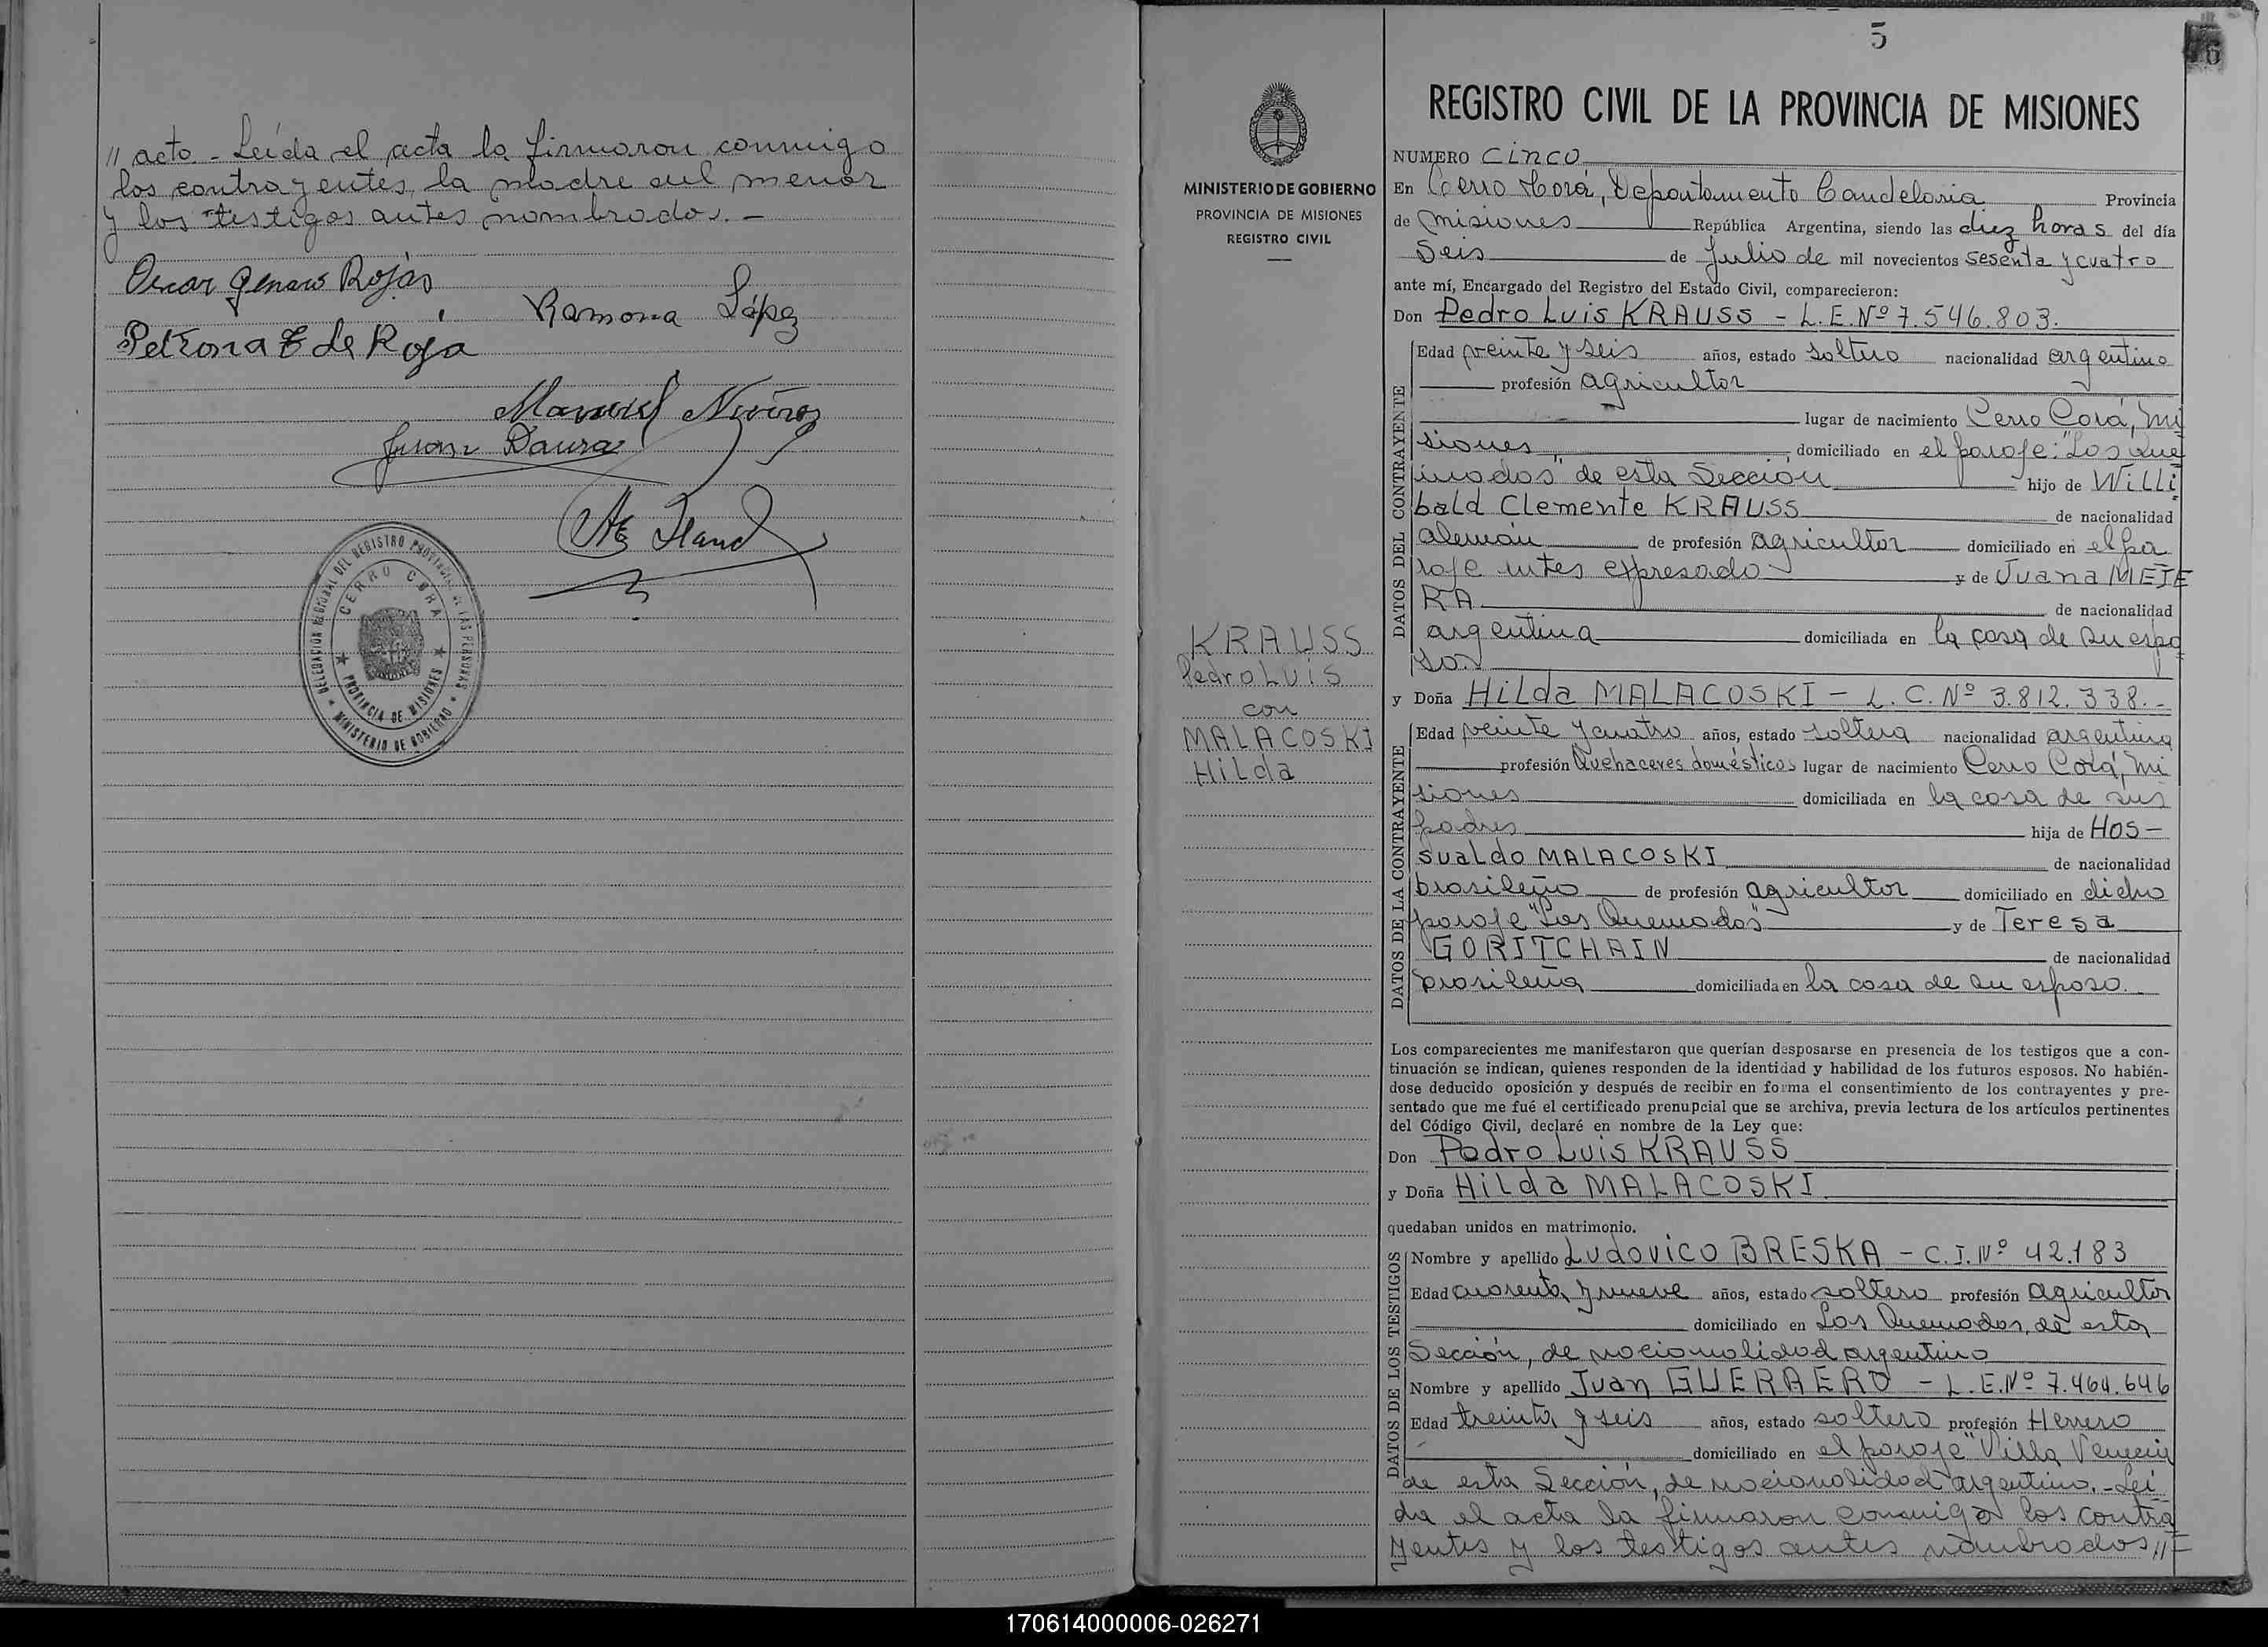 // acto - Leída el acta la firmaron conmigo
los contrayentes, la madre del menor
y los testigos antes nombrados. -
Oscar Genaro Rojas
Ramona López
Petrona E de Roja
Manuel
Juan
DELEGACION REGIONAL DEL REGISTRO PROVINCIAL DE LAS PERSONAS
CERRO CORA
PROVINCIA DE MISIONES
MINISTERIO DE GOBIERNO
MINISTERIO DE GOBIERNO
PROVINCIA DE MISIONES
REGISTRO CIVIL
KRAUSS
Pedro Luis
con
MALACOSKI
Hilda
5
6
REGISTRO CIVIL DE LA PROVINCIA DE MISIONES
NUMERO Cinco
En Cerro Corá, Departamento Candelaria Provincia
de Misiones República Argentina, siendo las diez horas del día
Seis de Julio de mil novecientos sesenta y cuatro
ante mí, Encargado del Registro del Estado Civil, comparecieron:
Don Pedro Luis KRAUSS - L.E. Nº 7.546.803.
DATOS DEL CONTRAYENTE
Edad veinte y seis años, estado soltero nacionalidad argentino
profesión agricultor
lugar de nacimiento Cerro Corá, Mi
siones domiciliado en el paraje: "Los Que
mados" de esta Sección hijo de Willi
bald Clemente KRAUSS de nacionalidad
alemán de profesión agricultor domiciliado en el pa
raje antes expresado y de Juana MEJE
RA de nacionalidad
argentina domiciliada en la casa de su espo
so.
y Doña Hilda MALACOSKI - L.C. Nº 3.812.338.-
DATOS DE LA CONTRAYENTE
Edad veinte y cuatro años, estado soltera nacionalidad argentina
profesión Quehaceres domésticos lugar de nacimiento Cerro Corá, Mi
siones domiciliada en la casa de sus
padres hija de HOS-
sualdo MALACOSKI de nacionalidad
brasileño de profesión agricultor domiciliado en dicho
paraje "Los Quemados" y de Teresa
GORITCHAIN de nacionalidad
brasileña domiciliada en la casa de su esposo.
Los comparecientes me manifestaron que querían desposarse en presencia de los testigos que a con-
tinuación se indican, quienes responden de la identidad y habilidad de los futuros esposos. No habién-
dose deducido oposición y después de recibir en forma el consentimiento de los contrayentes y pre-
sentado que me fué el certificado prenupcial que se archiva, previa lectura de los artículos pertinentes
del Código Civil, declaré en nombre de la Ley que:
Don Pedro Luis KRAUSS
y Doña Hilda MALACOSKI
quedaban unidos en matrimonio.
DATOS DE LOS TESTIGOS
Nombre y apellido Ludovico BRESKA - C.I. Nº 42.183
Edad cuarenta y nueve años, estado soltero profesión agricultor
domiciliado en Los Quemados, de esta
Sección, de nacionalidad argentino
Nombre y apellido Juan GUERRERO - L.E. Nº 7.464.646
Edad treinta y seis años, estado soltero profesión Herrero
domiciliado en el paraje "Villa Venecia
de esta Sección, de nacionalidad argentino. - Leí
da el acta la firmaron conmigo los contra
yentes y los testigos antes nombrados,//=
170614000006-026271